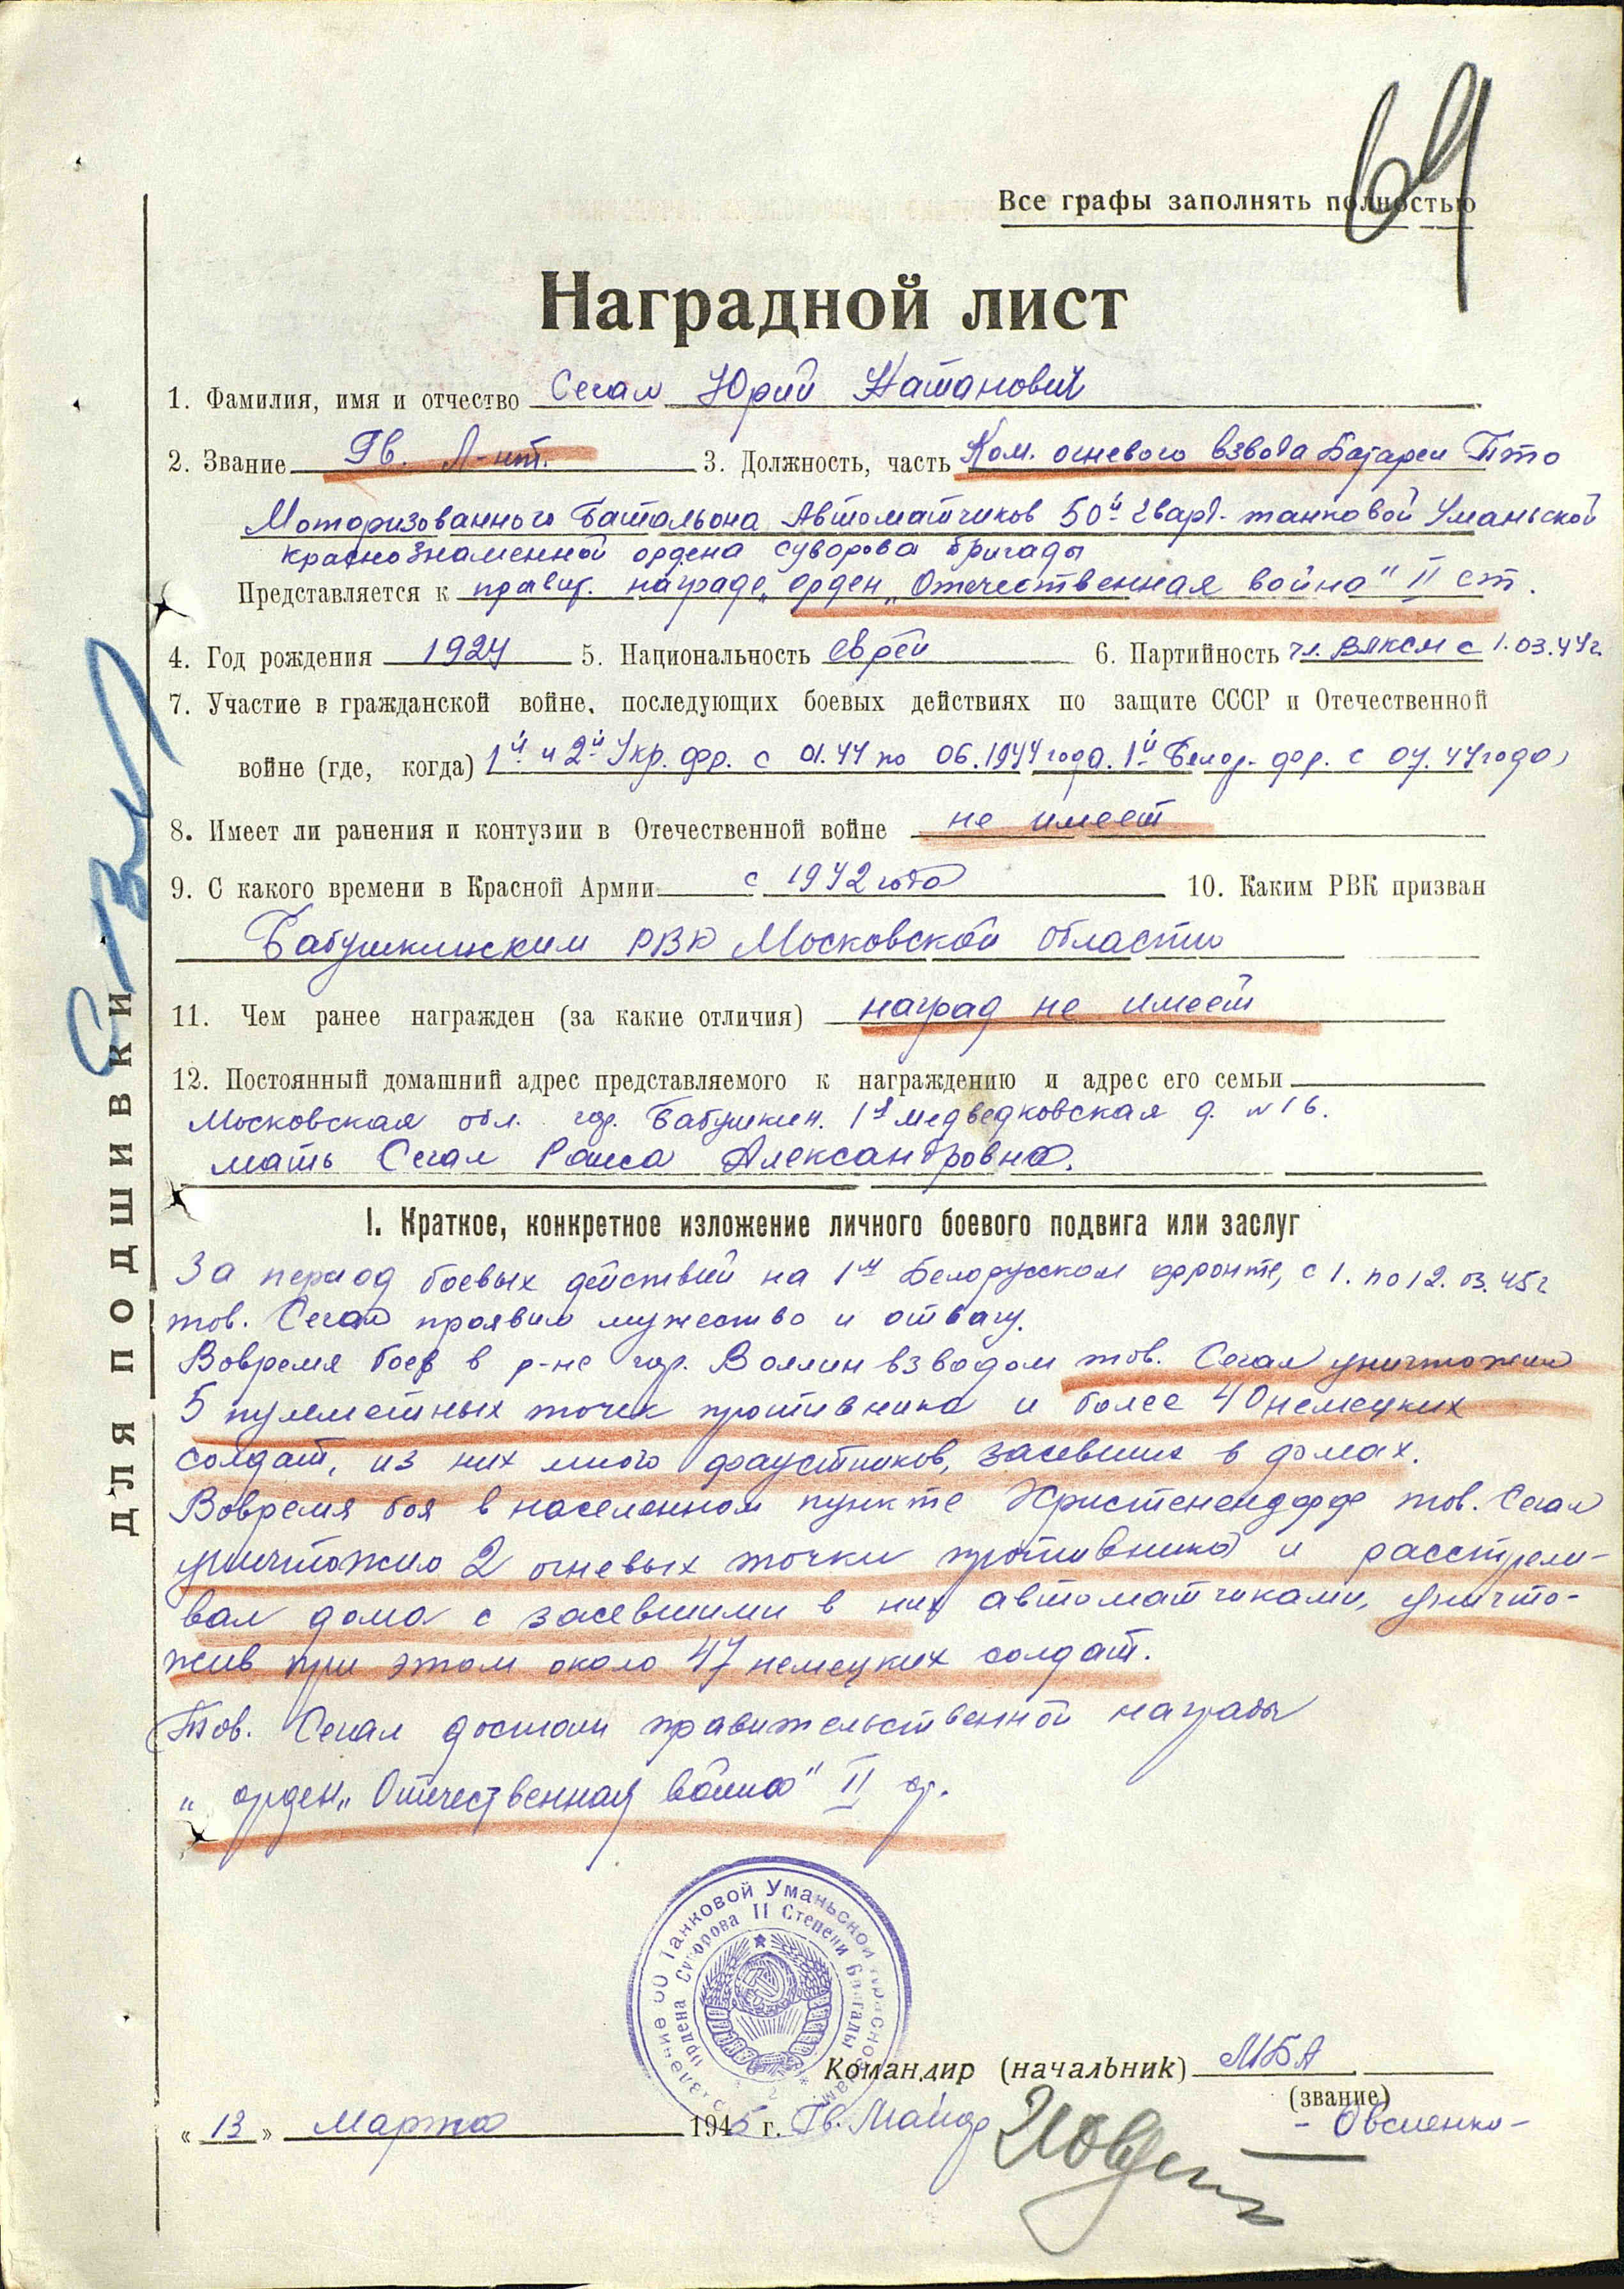 64
Все графы заполнять полностью
Наградной лист
1. Фамилия, имя и отчество Сегал Юрий Натанович
2. Звание Гв. Л-нт. 3. Должность, часть Ком. огневого взвода Батареи Пто
Моторизованного Батальона Автоматчиков 50й гвард. танковой Уманьской
краснознаменной ордена суворова бригады
Представляется к правит. награде „орден „Отечественная война" II ст.
4. Год рождения 1924 5. Национальность еврей 6. Партийность чл. ВЛКСМ с 1.03.44г
7. Участие в гражданской войне, последующих боевых действиях по защите СССР и Отечественной
войне (где, когда) 1й и 2й Укр. фр. с 01.44 по 06.1944 года. 1й Белор. фр. с 07.44 года
8. Имеет ли ранения и контузии в Отечественной войне не имеет
9. С какого времени в Красной Армии с 1942 года 10. Каким РВК призван
Бабушкинским РВК Московской области
11. Чем ранее награжден (за какие отличия) наград не имеет
12. Постоянный домашний адрес представляемого к награждению и адрес его семьи
Московская обл. гор. Бабушкин. 1я медведковская д. №16.
мать Сегал Раиса Александровна.
I. Краткое, конкретное изложение личного боевого подвига или заслуг
За период боевых действий на 1м Белорусском фронте, с 1. по 12.03.45г
тов. Сегал проявил мужество и отвагу.
Вовремя боев в р-не гор. Воллин взводом тов. Сегал уничтожил
5 пулеметных точек противника и более 40 немецких
солдат, из них много фаустников, засевших в домах.
Вовремя боя в населенном пункте Христенендорф тов. Сегал
уничтожил 2 огневых точки противника и расстрели-
вал дома с засевшими в них автоматчиками, уничто-
жив при этом около 47 немецких солдат.
Тов. Сегал достоин правительственной награды
„ орден „Отечественная война" II ст.
Танковой Уманьской
ордена Суворова II Степени Бригады
Командир (начальник) МБА
(звание)
« 13 » Марта 1945 г. Гв. Майор - Овсиенко -
ДЛЯ ПОДШИВКИ